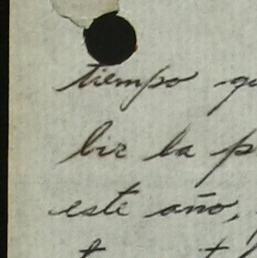 tiempo
bir la
este año,